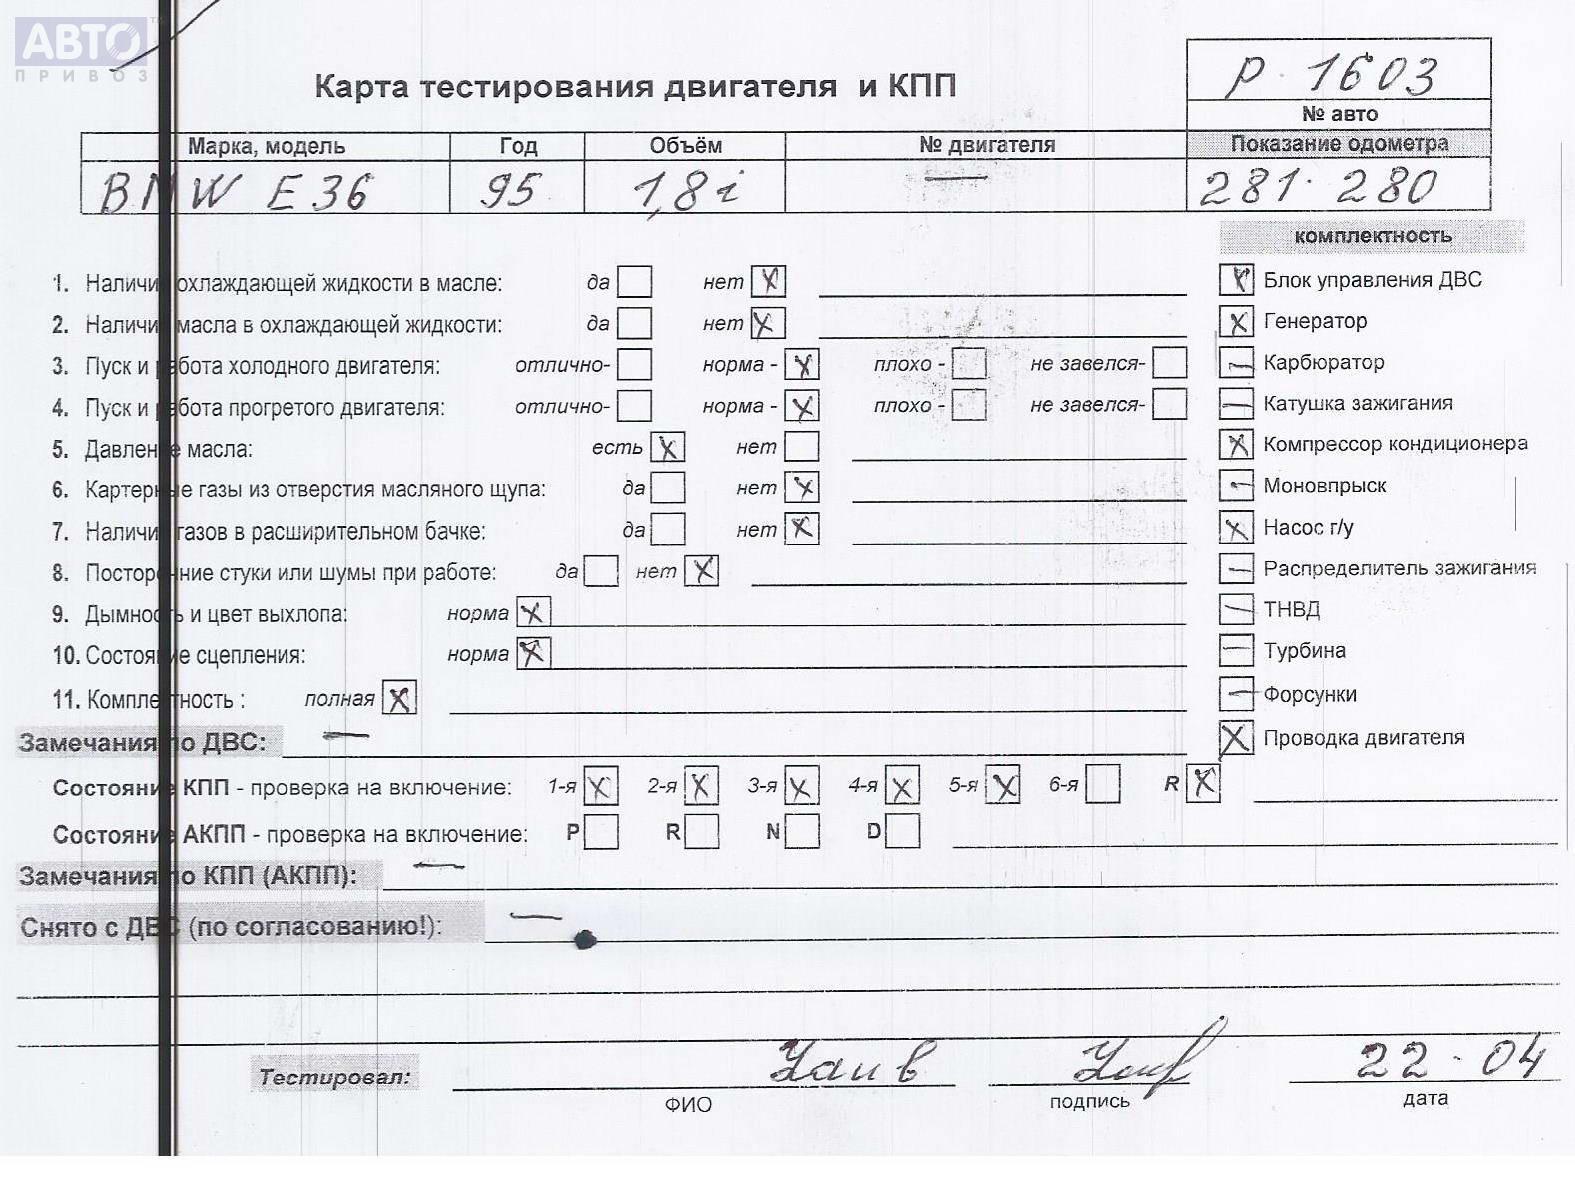 АВТО
ПРИВОЗ
Карта тестирования двигателя и КПП
Р. 1603
№ авто
Марка, модель Год Объём № двигателя Показание одометра
BMW E 36 95 1,8 i — 281. 280
комплектность
1. Наличие охлаждающей жидкости в масле: да нет X
2. Наличие масла в охлаждающей жидкости: да нет X
3. Пуск и работа холодного двигателя: отлично- норма - X плохо - не завелся-
4. Пуск и работа прогретого двигателя: отлично- норма - X плохо - не завелся-
5. Давление масла: есть X нет
6. Картерные газы из отверстия масляного щупа: да нет X
7. Наличие газов в расширительном бачке: да нет X
8. Посторонние стуки или шумы при работе: да нет X
9. Дымность и цвет выхлопа: норма X
10. Состояние сцепления: норма X
11. Комплектность : полная X
X Блок управления ДВС
X Генератор
— Карбюратор
— Катушка зажигания
X Компрессор кондиционера
— Моновпрыск
X Насос г/у
— Распределитель зажигания
— ТНВД
— Турбина
— Форсунки
X Проводка двигателя
Замечания по ДВС: —
Состояние КПП - проверка на включение: 1-я X 2-я X 3-я X 4-я X 5-я X 6-я R X
Состояние АКПП - проверка на включение: P R N D
Замечания по КПП (АКПП): —
Снято с ДВС (по согласованию!): —
Тестировал: 22-04
ФИО подпись дата